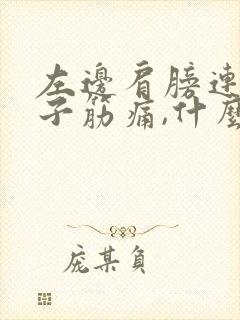 左邊肩膀連
子筋痛,什麼
龐某負